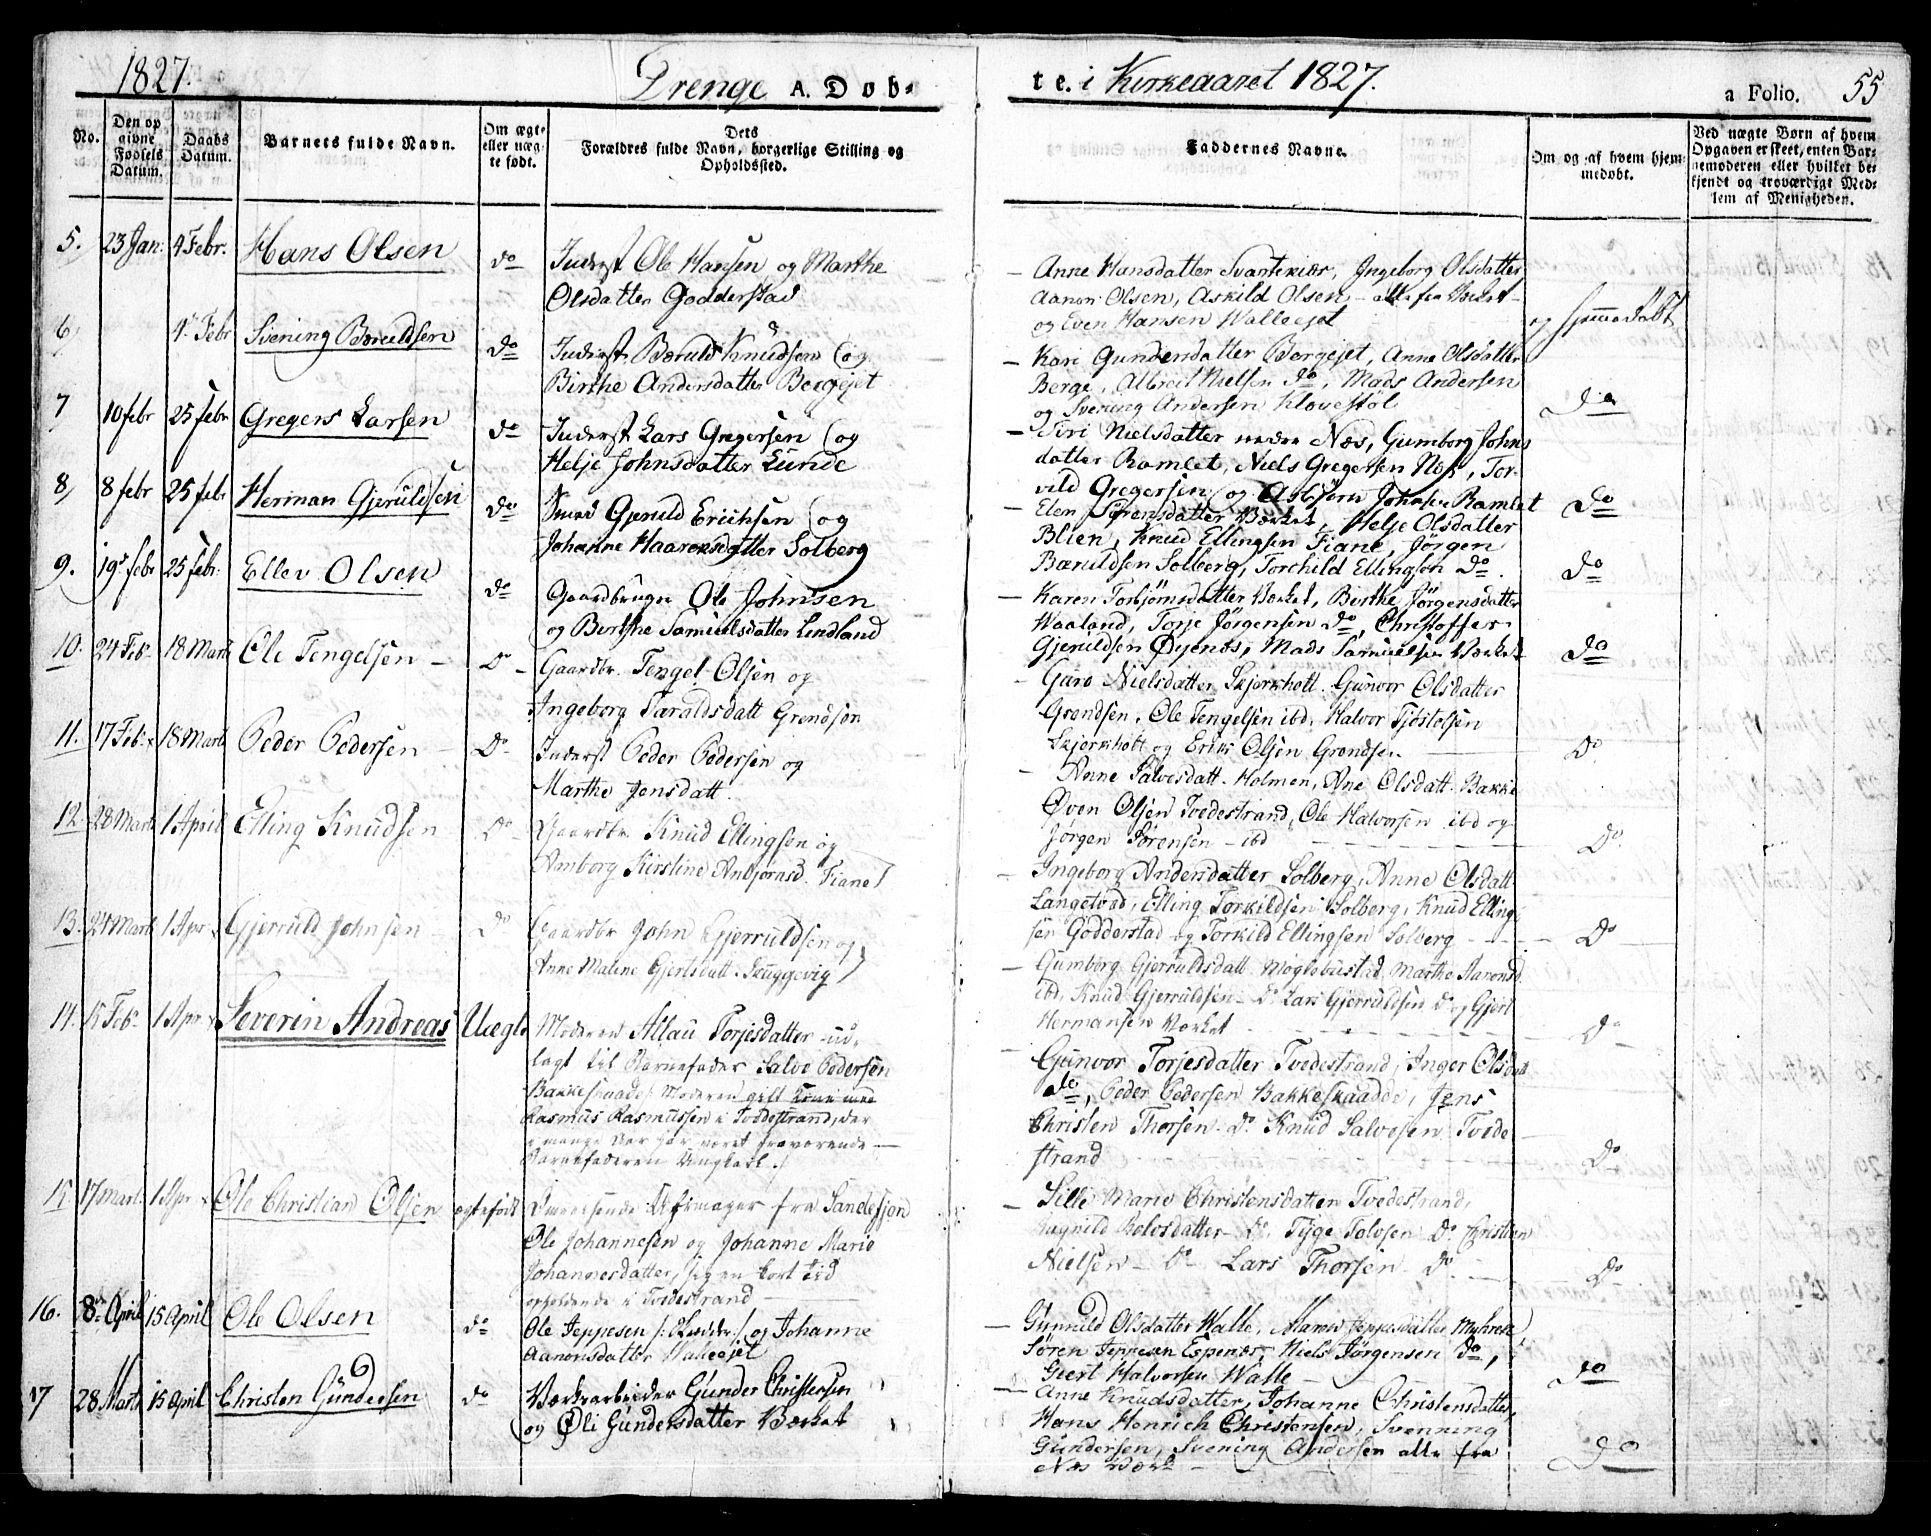 1827.
Drenge A. Døb-
te. i Kirkeaaret 1827.
a Folio. 55
No.
Den op
givne
Fødsels
Datum.
Daabs
Datum.
Barnets fulde Navn.
Om ægt-
eller næg-
te født.
Dets
Forældres fulde Navn, borgerlige Stilling og
Opholdssted.
Faddernes Navne.
Om og af hvem hjem-
medøbt.
Ved uægte Børn af hvem
Opgaven er skeet, enten Bar-
nemoderen eller hvilket be-
kjendt og troværdigt Med-
lem af Menigheden.
5. 23 Jan. 4 Febr. Hans Olsen do
Inderst Ole Hansen og Marthe
Olsdatter Godderstad
Anne Hansdatter Svartekiær, Ingeborg Olsdatter
Aanon Olsen, Askild Olsen - alle fra Værket -
og Even Hansen Walleejet
og hjemmedøbt
6) 4 Febr Svening Bæruldsen do
Inderst Bæruld Knudsen (og
Birthe Andersdatter Bergejet
Kari Gundersdatter Bergejet, Anne Olsdatter
Berge, Nielsen do, Mads Andersen
og Svening Andersen Klovestøl
do
7 10 febr 25 febr Gregers Larsen do
Inderst Lars Gregersen (og
Helje Johnsdatter Lunde
Siri Nielsdatter nedre Næs, Gumborg Johns
datter Ramlet, Niels Gregersen Næs, Tor-
vild Gregersen (og Asbjørn Johnsen Ramlet
do
8) 8 febr 25 febr Herman Gjeruldsen do
Smed Gjeruld Erichsen (og
Johanne Haaronsdatter Solberg
Elen Sørensdatter Værket, Helje Olsdatter
Blien, Knud Ellingsen Fiane, Jörgen
Bæruldsen Solberg, Torchild Ellingsøn do.
do
9. 19de febr 25 febr. Ellev Olsen do
Gaardbruger Ole Johnsen
og Birthe Samuelsdatter Lindland
Karen Torbjørnsdatter Værket, Birthe Jørgensdatter
Waaland, Torje Jörgensen do, Christoffer
Gjeruldsen Øyenæs, Mads Samuelsen Værket
do
10. 24 Feb. 18 Marts Ole Tengelsen Do
Gaardbr. Tengel Olsen og
Ingeborg Taraldsdatt Grendsøn
Garo Nielsdatter Skjerkholt. Gunvor Olsdatter
Grendsen, Ole Tengelsen ibd, Halvor Tjöstolsen
Skjerkholt og Erik Olsen Grendsen
Do
11. 17 Feb. 18 Marts Peder Pedersen Do
Inderst Peder Pedersen og
Marthe Jensdatt.
Anne Salvesdatt. Holmen, Ane Olsdatt. Bakke
Øven Olsen Tvedestrand, Ole Halvorsen ibd og
Jörgen Sørensen - ibd
Do.
12. 28 Marts 1 April Elling Knudsen Do
Gaardbr. Knud Ellingsen og
Amborg Kirstine Anbjørnsd. Fiane
Ingeborg Andersdatter Solberg, Anne Olsdatt
Langestad, Elling Torkildsen Solberg, Knud Elling-
sen Godderstad og Torkild Ellingsen Solberg
Do
13. 24 Marts 1 Apr Gjeruld Johnsen Do
Gaardbr John Gjerruldsen og
Anne Malene Gjertsdatt. Skuggevig
Gumborg Gjerruldsdatt. Moglebustad, Marthe Aaronsd
ibd, Knud Gjerruldsen Do Lars Gjerruldsen Do og Gjert
Hermansen Værket
Do
14. 15 Feb. 1 Apr Severin Andreas Uægte
Moderen Aslau Torjesdatter ud-
lagt til Barnefader Salve Pedersen
Bakkeskaade. Moderen gift Kone med
Rasmus Rasmussen i Tvedestrand, der
i mange Aar har været fraværende
Barnefaderen Ungkarl.
Gunvor Torjesdatter Tvedestrand, Inger Olsdatt
do, Peder Pedersen Bakkeskaade, Jens
Christen Thorsen Do Knud Salvesen Tvede
strand
Do
15 17 Mart. 1 Apr Ole Christian Olsen ægtefødt
fra Sandefjord
Ole Johannesen og Johanne Marie
Johannesdatter, en kort tid
opholdende i Tvedestrand
Sille Marie Christensdatter Tvedestrand,
Do. Tyge Tolvsen Do Christian
Nielsen Do Lars Thorsen Do
Do
16. 8de April 15 April Ole Olsen do
Ole Jeppesen og Johanne
Aanonsdatter Walleejet
Gunnild Olsdatter Walle, Maren Jeppesdatter Myhren
Søren Jeppesen Espenæs, Niels Jørgensen do,
Geert Halvorsen Walle
do
17 28 Marts 15 April Christen Gundersen do
Værksarbeider Gunder Christensen
(og Øli Gundersdatter Værket
Anne Knudsdatter, Johanne Christensdatter
Hans Henrich Christensen, Svenning
Gundersen, Svening Andersen alle fra
Næs Værk
Do